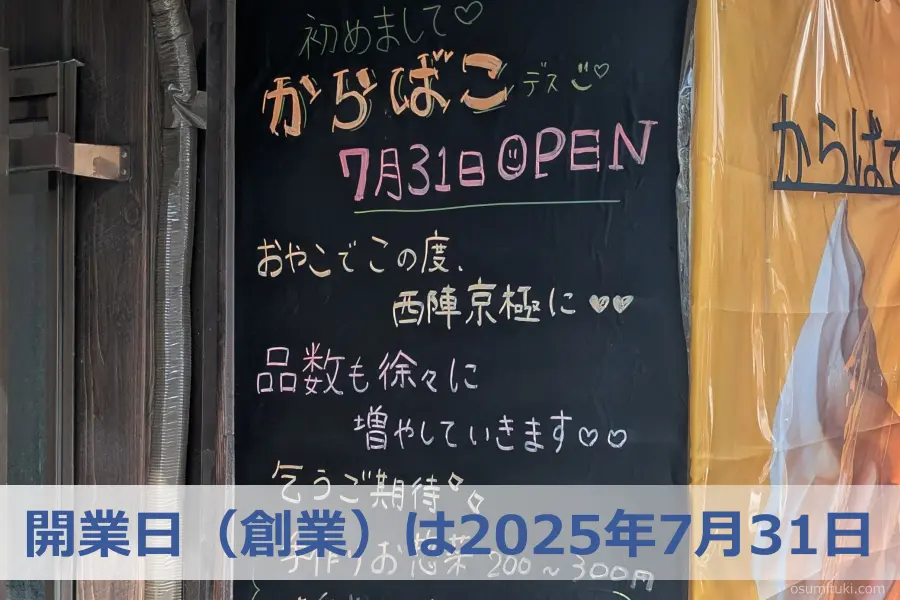 初めまして♡
からばこデス♡
7月31日OPEN
おやこでこの度、
西陣京極に♥♥
品数も徐々に
増やしていきます♡♡
乞うご期待
開業日（創業）は2025年7月31日
手作りお惣菜 200～300円
からばこ
osumituki.com